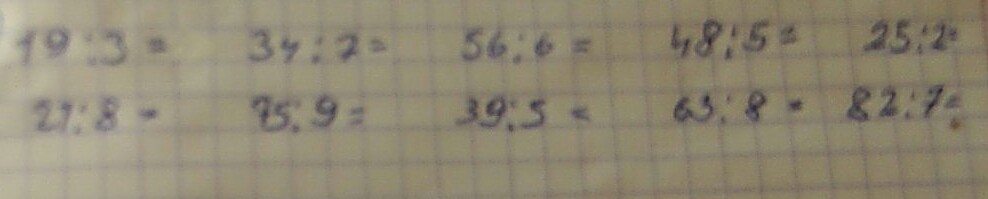 19:3= 34:7= 56:6= 48:5= 25:2=
27:8= 75:9= 39:5= 63:8= 82:7=